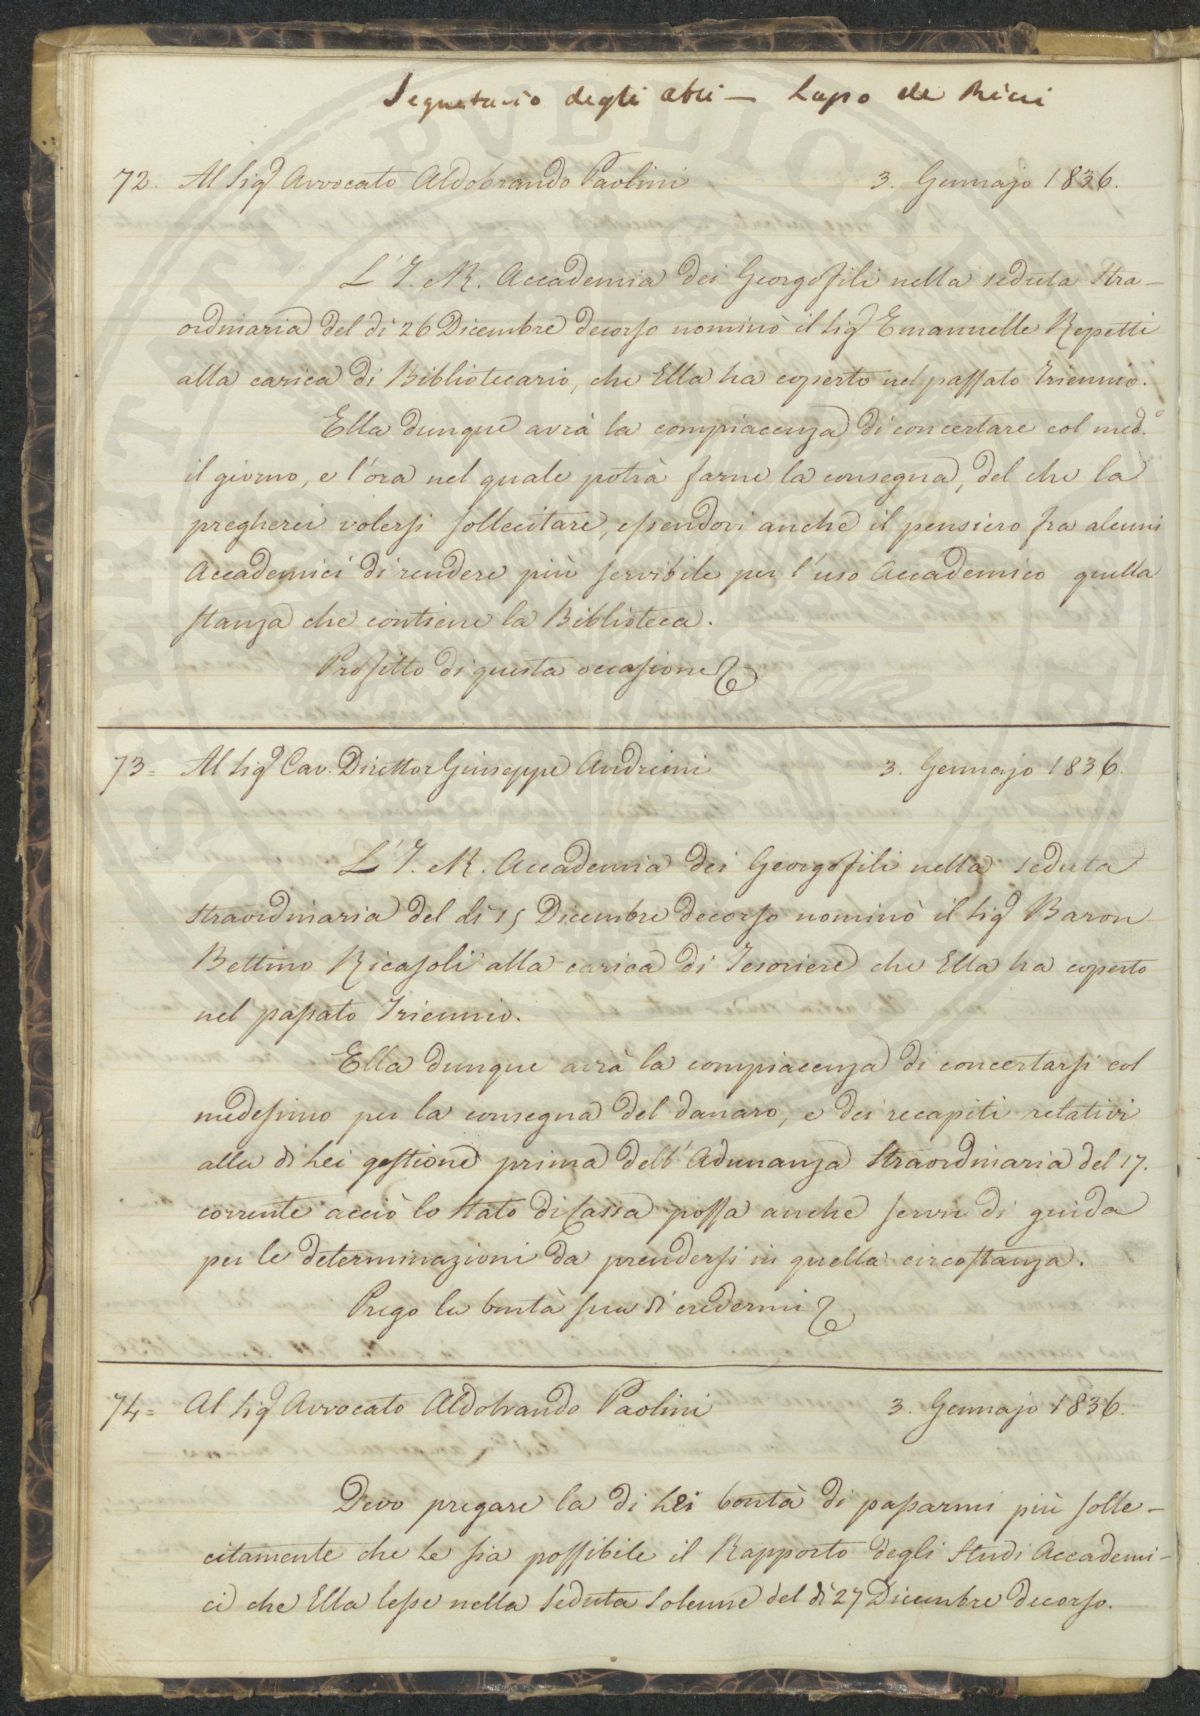 Segretario degli atti — Lapo de Ricci
72. Al Sig.r Avvocato Aldobrando Paolini 3. Gennajo 1836.
L'I. e R. Accademia dei Georgofili nella seduta stra-
ordinaria del dì 26 Dicembre decorso nominò il Sig.r Emanuelle Repetti
alla carica di Bibliotecario, che Ella ha coperto nel passato Triennio.
Ella dunque avrà la compiacenza di concertare col med.o
il giorno, e l'ora nel quale potrà farne la consegna, del che la
pregherei volersi sollecitare, essendovi anche il pensiero fra alcuni
Accademici di rendere più servibile per l'uso Accademico quella
stanza che contiene la Biblioteca.
Profitto di questa occasione
73= Al Sig.r Cav. Direttor Giuseppe Andreini 3. Gennajo 1836.
L'I. e R. Accademia dei Georgofili nella seduta
straordinaria del dì 15 Dicembre decorso nominò il Sig.r Baron
Bettino Ricasoli alla carica di Tesoriere che Ella ha coperto
nel passato Triennio.
Ella dunque avrà la compiacenza di concertarsi col
medesimo per la consegna del danaro, e dei recapiti relativi
alla di Lei gestione prima dell'Adunanza Straordinaria del 17.
corrente acciò lo stato di Cassa possa anche servir di guida
per le determinazioni da prendersi in quella circostanza.
Prego la bontà sua di credermi
74= Al Sig.r Avvocato Aldobrando Paolini 3. Gennajo 1836.
Devo pregare la di Lei bontà di passarmi più solle-
citamente che Le sia possibile il Rapporto degli Studi Accademi-
ci che Ella lesse nella Seduta Solenne del dì 27 Dicembre decorso.